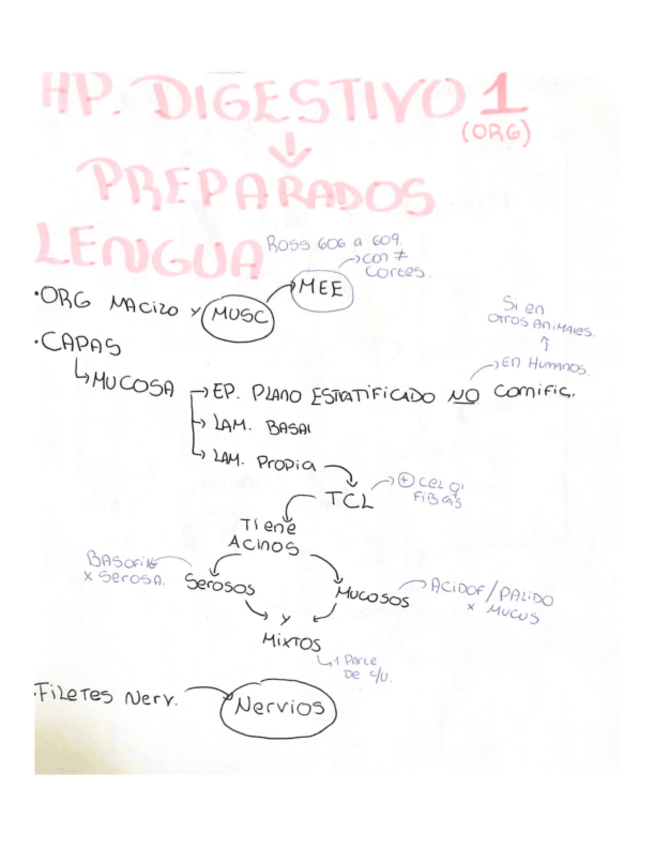 HP. DIGESTIVO 1
(ORG)
PREPARADOS
LENGUA
ROSS 606 a 609.
→con ≠
cortes.
MEE
·ORG MACIZO y MUSC
Si en
otros animales.
·CAPAS
→En Humanos.
↳MUCOSA →EP. PLANO ESTRATIFICADO NO cornific.
→LAM. BASAl
→LAM. Propia
TCL
→⊕ cel q'
FIBRAS
Tiene
ACINOS
BASOFILO
x SEROSA.
Serosos
Mucosos
→ACIDOF/PALIDO
x MUCUS
y
MIXTOS
↳1 PARTE
DE c/u.
·FILETES Nerv.
Nervios